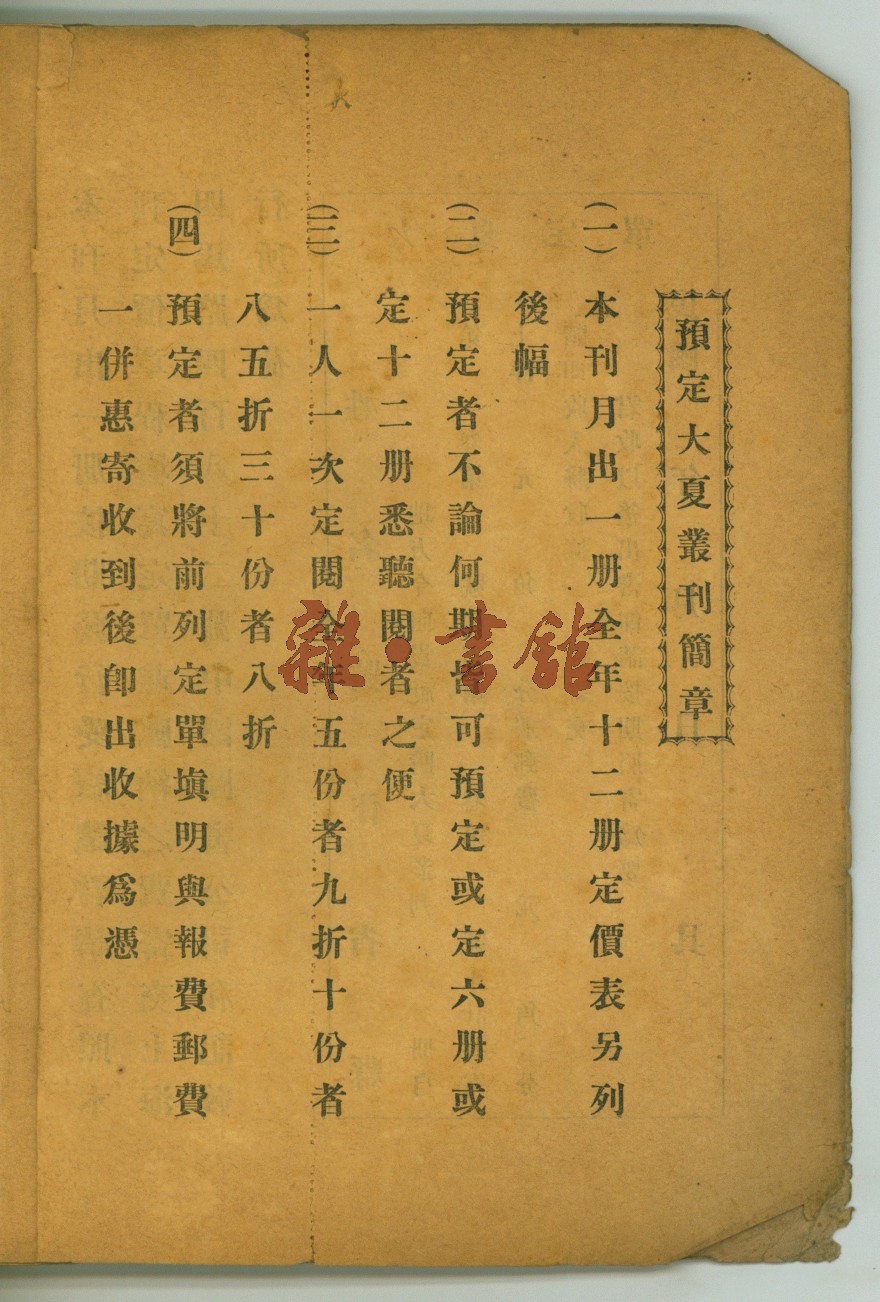 預定大夏叢刊簡章
(一)本刊月出一册全年十二册定價表另列
後幅
(二)預定者不論何期皆可預定或定六册或
定十二册悉聽閱者之便
(三)一人一次定閱全年五份者九折十份者
八五折三十份者八折
(四)預定者須將前列定單塡明與報費郵費
一併惠寄收到後卽出收據爲憑
雜·書館